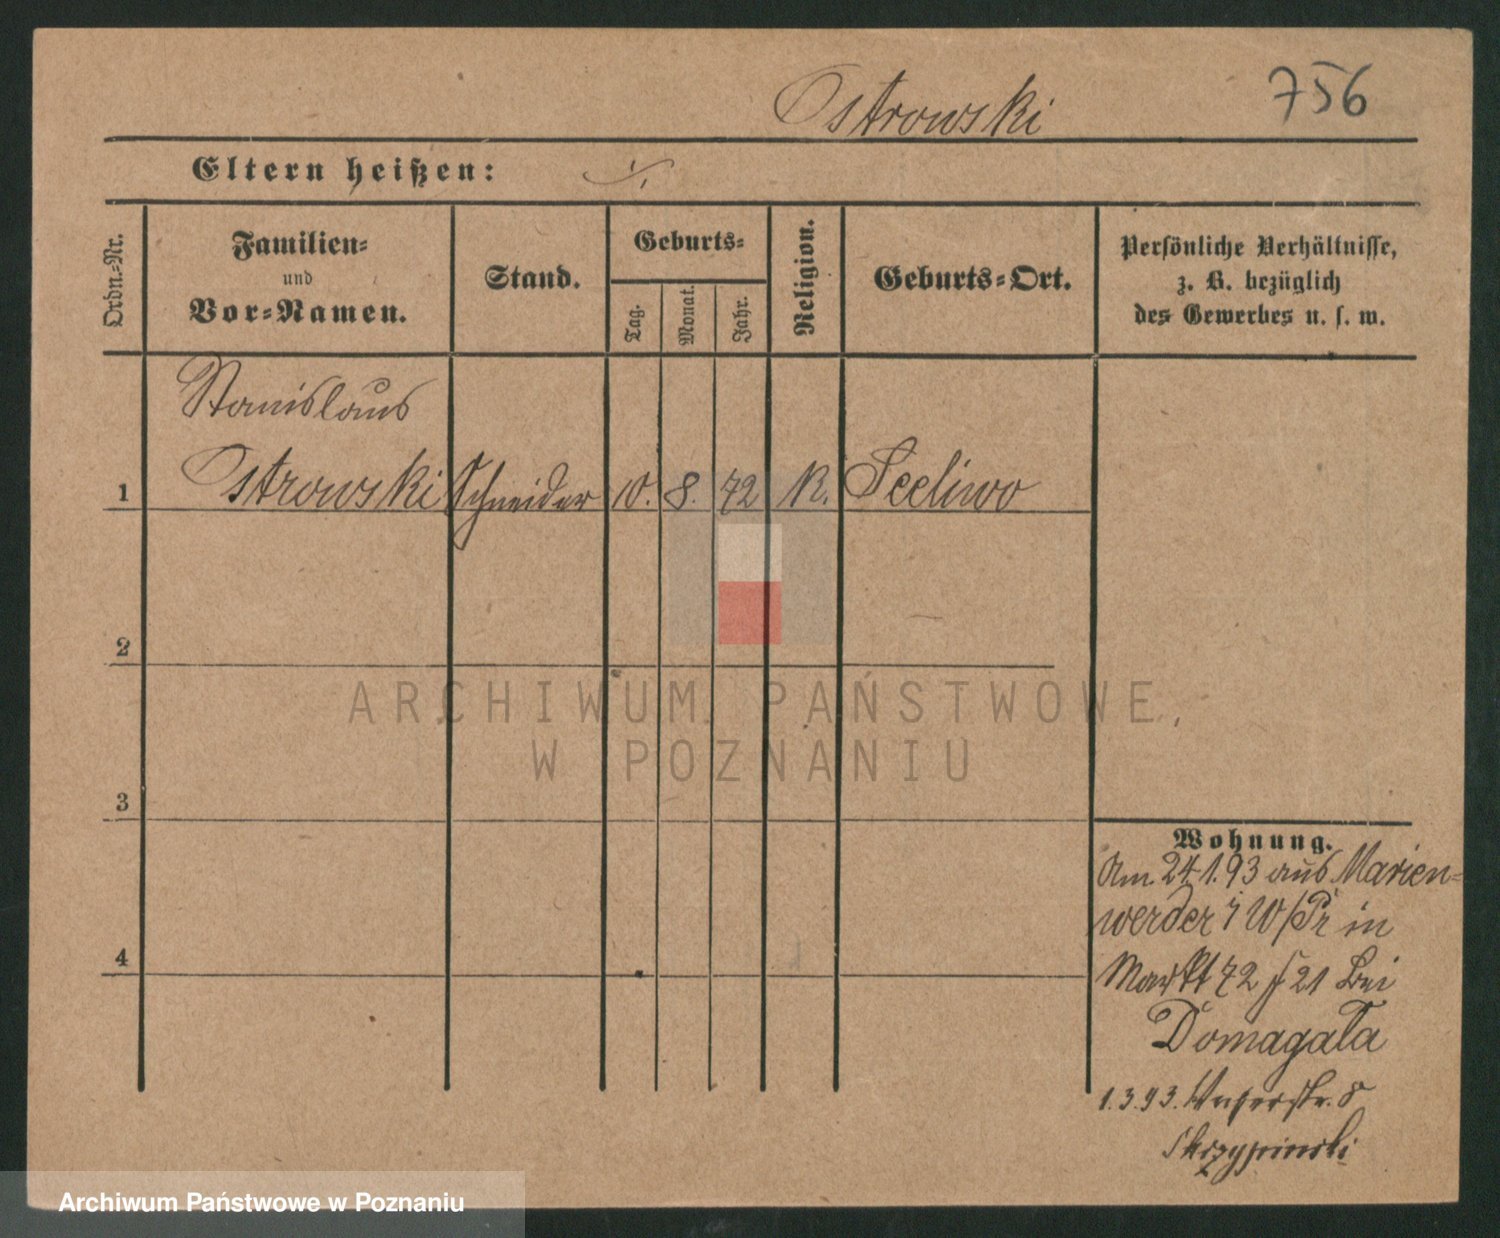 Ostrowski
756
Eltern heißen: ·/.
Ordn.=Nr.
Familien=
und
Vor=Namen.
Stand.
Geburts=
Tag.
Monat.
Jahr.
Religion.
Geburts=Ort.
Persönliche Verhältnisse,
z. B. bezüglich
des Gewerbes u. s. w.
Stanislaus
1 Ostrowski Schneider 10. 8. 72 K. Seeliwo
2
3
4
Wohnung.
Am 24.1.93 aus Marien=
werder i W/Pr in
Markt 72 21 bei
Domagała
1.3.93. 8
Skrzypinski
ARCHIWUM PAŃSTWOWE
W POZNANIU
Archiwum Państwowe w Poznaniu